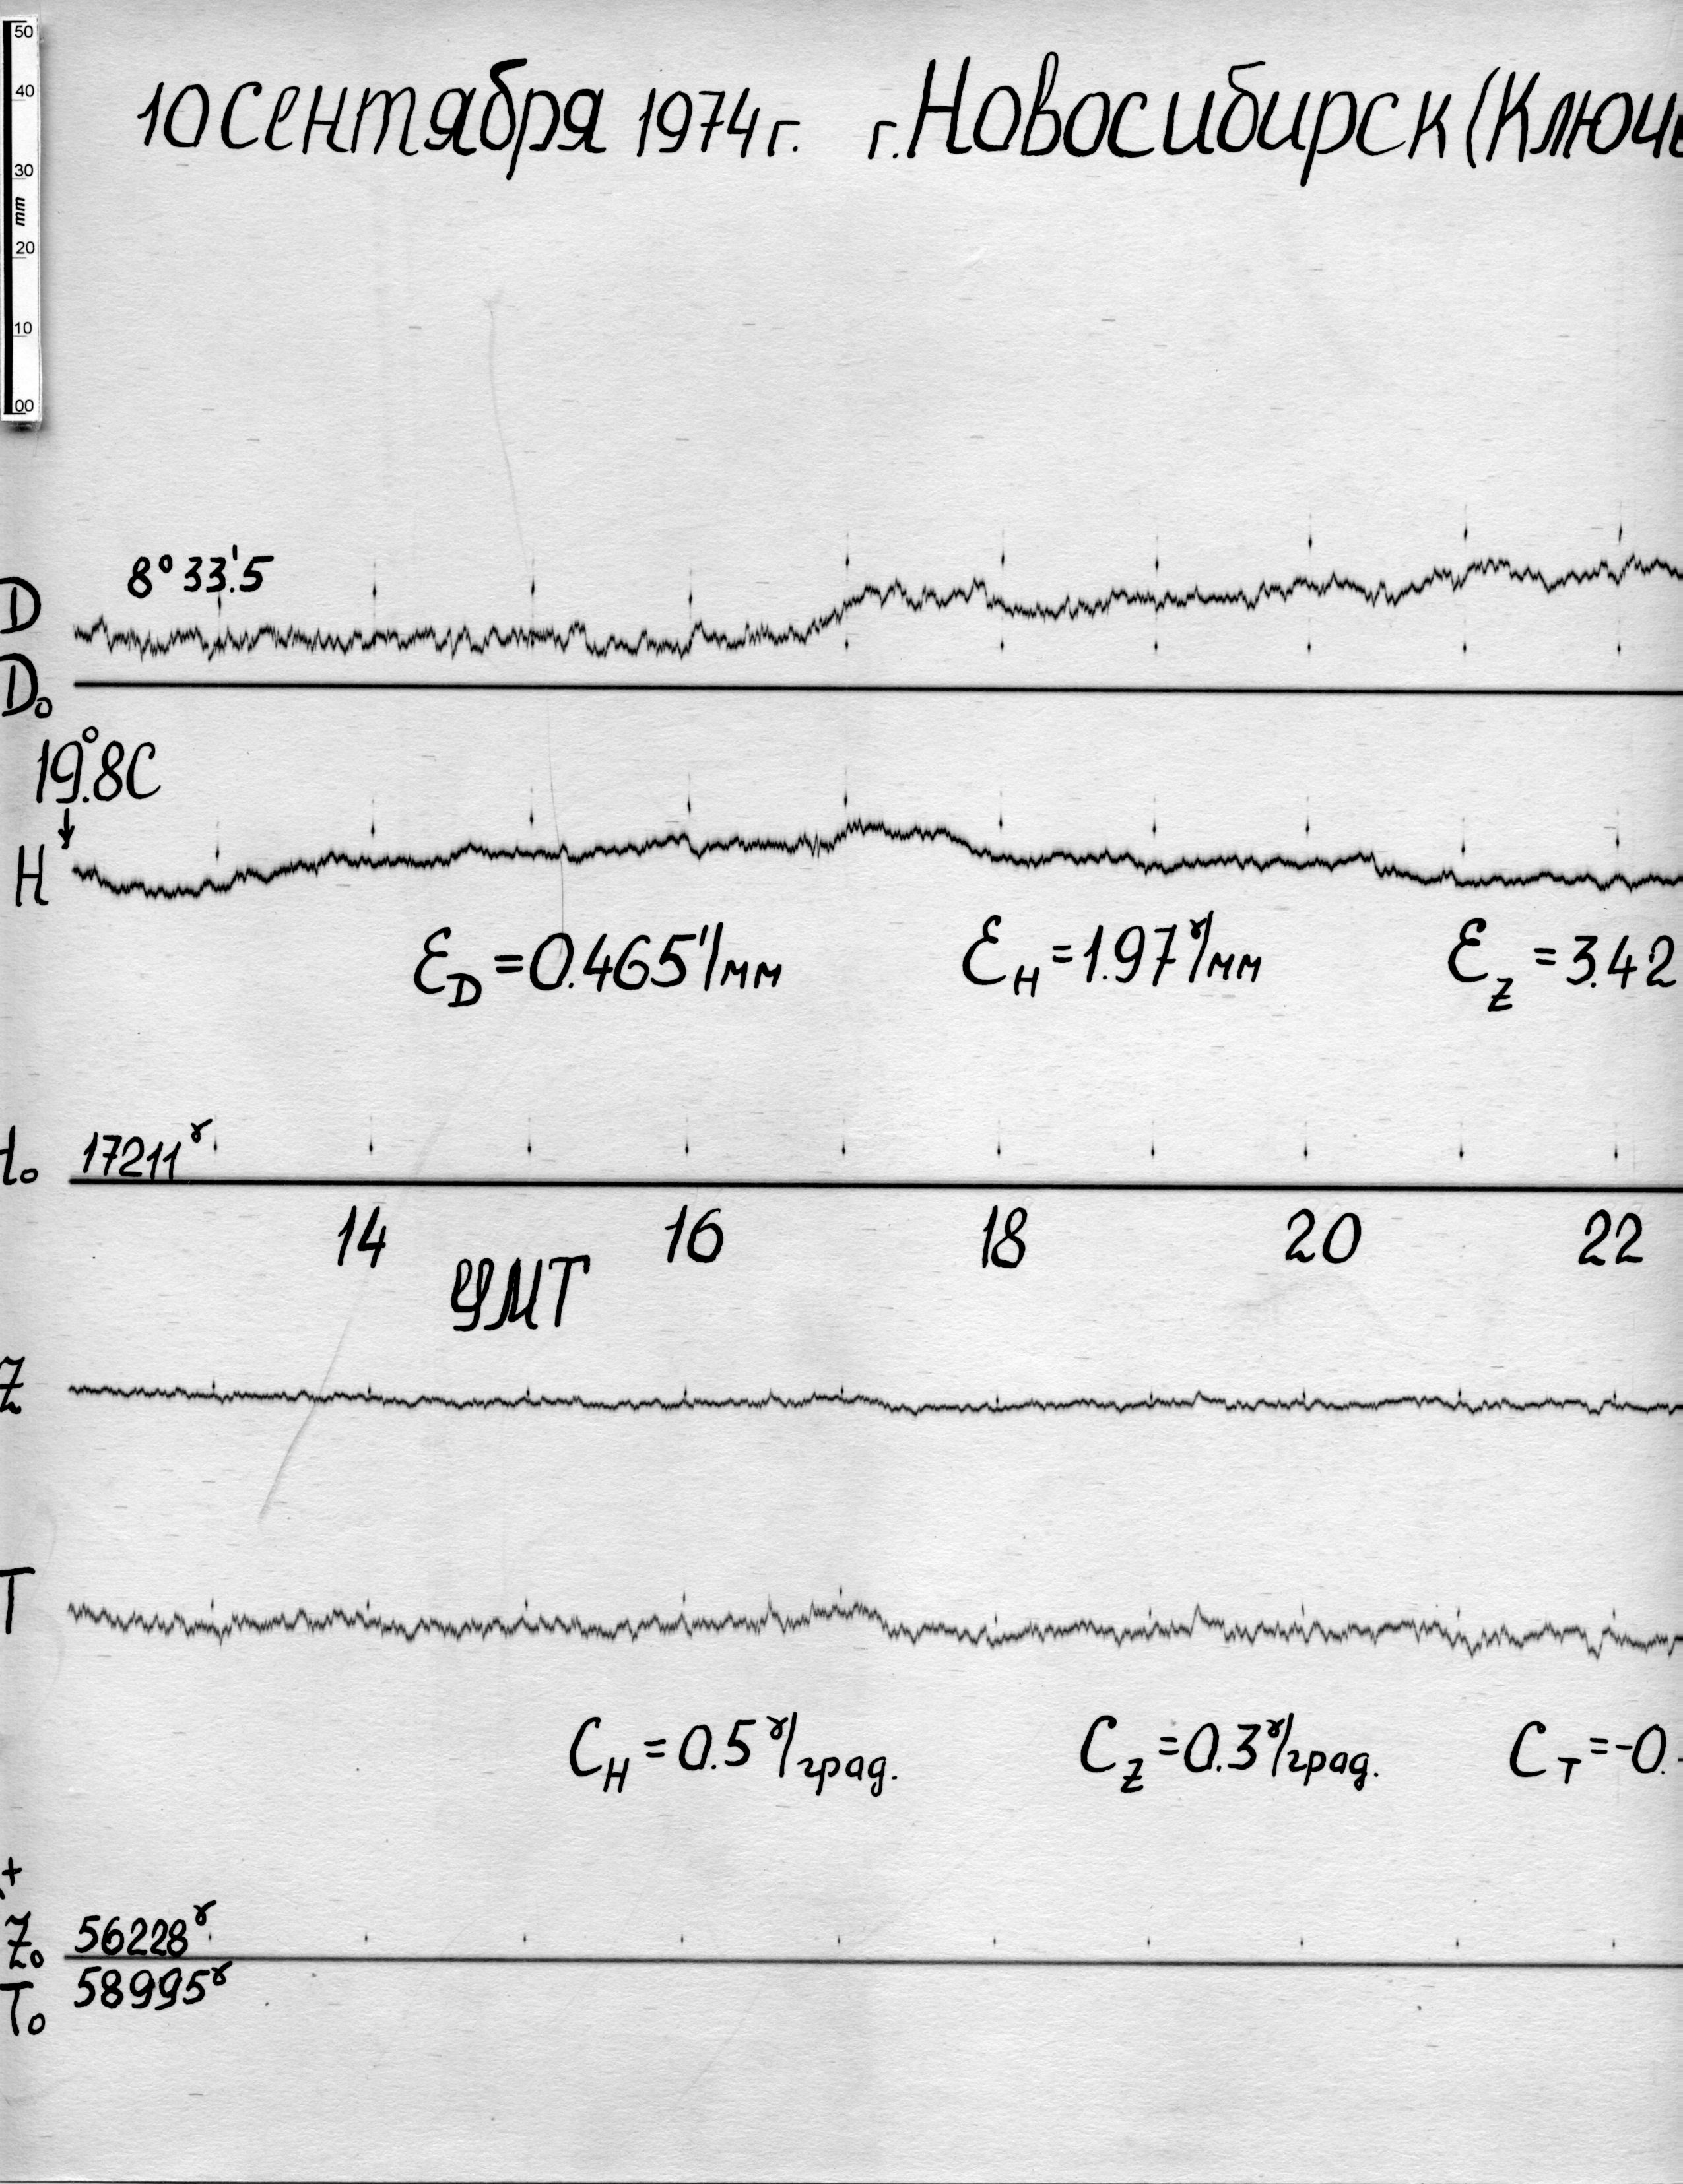 50
40
30
mm
20
10
00
10 сентября 1974г. г. Новосибирск (Ключе
8°33.'5
D
D₀
19.°8C
H
ℰD = 0.465'/мм ℰH = 1.97ɤ/мм ℰZ = 3.42
17211ɤ
14 16 18 20 22
Z
T
CH = 0.5ɤ/град. CZ = 0.3ɤ/град. CT = -0.
+
Z₀ 56228ɤ
T₀ 58995ɤ